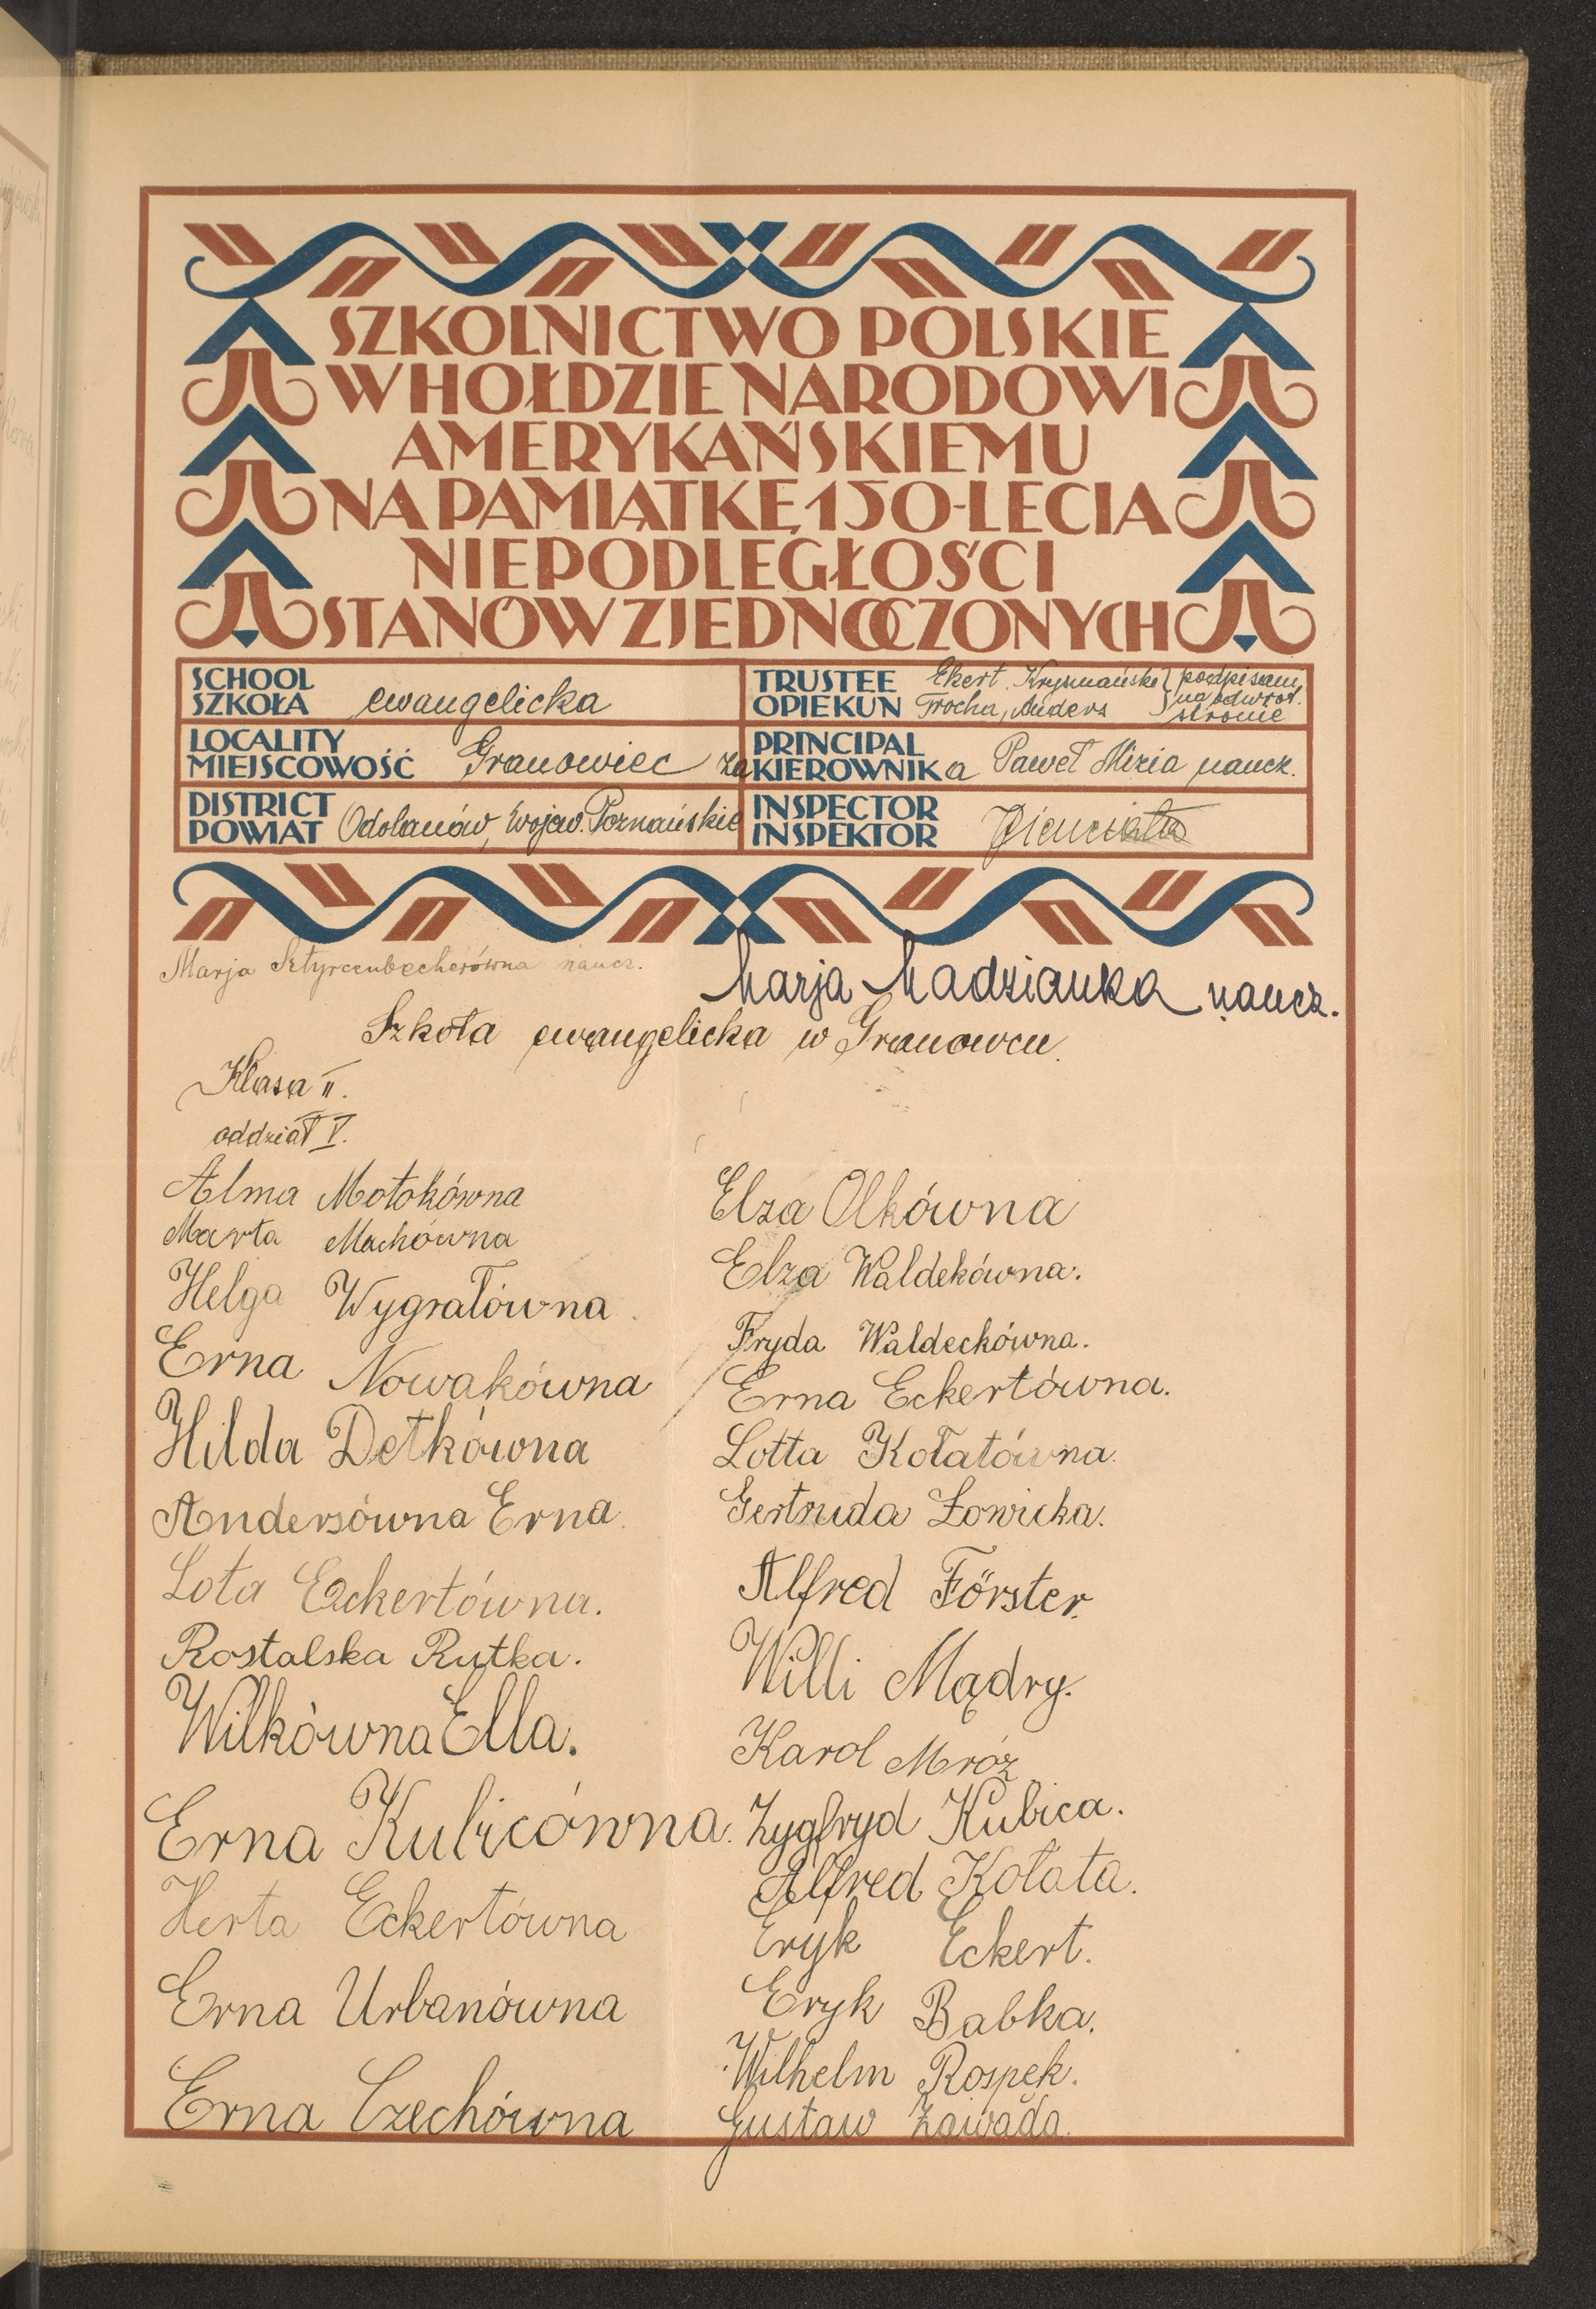 SZKOLNICTWO POLSKIE
W HOŁDZIE NARODOWI
AMERYKAŃSKIEMU
NA PAMIĄTKĘ 150-LECIA
NIEPODLEGŁOŚCI
STANÓW ZJEDNOCZONYCH
SCHOOL
SZKOŁA ewangelicka
TRUSTEE
OPIEKUN Ekert, Krysmański
Trocha, Anders } podpisani
na odwrot.
stronie
LOCALITY
MIEJSCOWOŚĆ Granowiec
PRINCIPAL
za KIEROWNIKa Paweł Mizia naucz.
DISTRICT
POWIAT Odolanów, Wojew. Poznańskie
INSPECTOR
INSPEKTOR
Marja Sztyrcenbecherówna naucz.
Marja Madzianka naucz.
Szkoła ewangelicka w Granowcu.
Klasa II.
oddział V.
Alma Motokówna
Marta Machówna
Helga Wygrałówna
Erna Nowakówna
Hilda Detkówna
Andersówna Erna
Lota Eckertówna.
Rostalska Rutka.
Wilkówna Ella.
Erna Kubicówna.
Herta Eckertówna
Erna Urbanówna
Erna Czechówna
Elza Olkówna
Elza Waldekówna.
Fryda Waldechówna.
Erna Eckertówna.
Lotta Kołatówna.
Gertruda Łowicka.
Alfred Förster.
Willi Mądry.
Karol Mróz
Zygfryd Kubica.
Alfred Kołata.
Eryk Eckert.
Eryk Babka.
Wilhelm Rospek.
Gustaw Zawada.